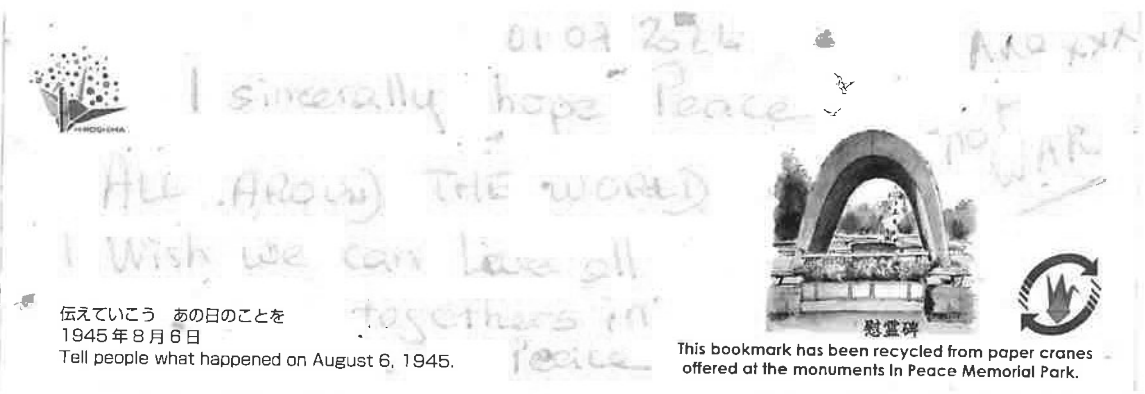 01 07 2024
xxx
I sincerally hope Peace
not
WAR
HIROSHIMA
ALL AROUND THE WORLD
I Wish we can Live all
togethers in
Peace
伝えていこう　あの日のことを
1945年8月6日
Tell people what happened on August 6, 1945.
慰霊碑
This bookmark has been recycled from paper cranes
offered at the monuments in Peace Memorial Park.